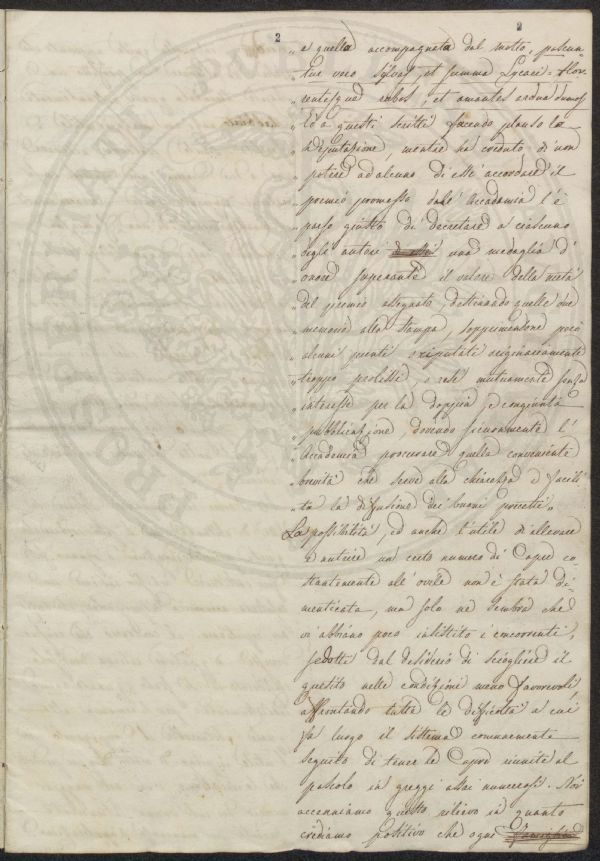 2 2
„ e quella accompagnata dal motto, pascun
„ tur vero sylvas, et summa Lycaei: Hor
„ rentesque rubos, et amantes ardua dumos
„ E a questi scritti facendo plauso la
„ Deputazione, mentre ha creduto di non
„ potere ad alcuno di essi accordare il
„ premio promesso dall' Accademia l'è
„ parso giusto di decretare a ciascuno
„ degli autori di essi una medaglia d'
„ onore superante il valore della metà
„ del premio assegnato, destinando quelle due
„ memorie alla stampa, soppimendone però
„ alcuni punti o riputati originariamente
„ troppo prolissi, o resi mutuamente senza
„ interesse per la doppia e congiunta
„ pubblicazione, dovendo sicuramente l'
„ Accademia procurare quella conveniente
„ brevità che serve alla chiarezza e facili
„ ta la diffusione dei buoni precetti „
La possibilità, ed anche l'utile di allevare
e nutrire un certo numero di Capre co
stantemente all' ovile non è stata di=
menticata, ma solo ne sembra che
vi abbiano poco insistito i concorrenti,
sedotti dal desiderio di sciogliere il
quesito nelle condizioni meno favorevoli,
affrontando tutte le difficoltà a cui
fa luogo il sistema comunemente
seguito di tener le Capre riunite al
pascolo in greggi assai numerosi. Noi
accenniamo questo rilievo in quanto
crediamo positivo che ogni famiglia